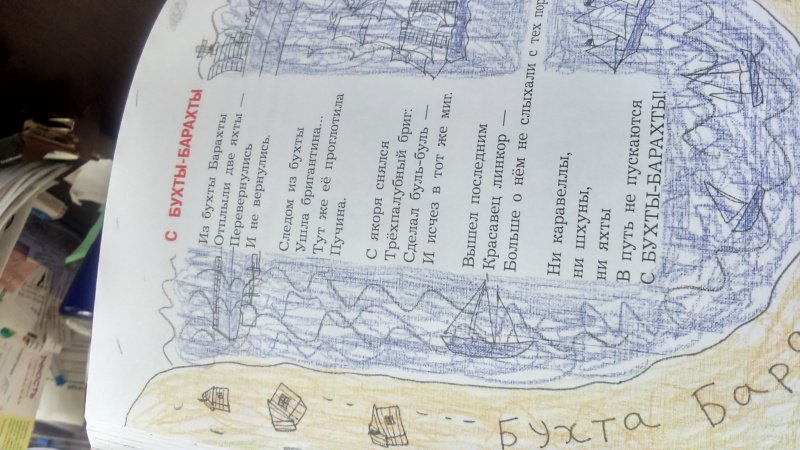 С БУХТЫ-БАРАХТЫ
Из бухты Барахты
Отплыли две яхты —
Перевернулись
И не вернулись.
Следом из бухты
Ушла бригантина...
Тут же её проглотила
Пучина.
С якоря снялся
Трёхпалубный бриг:
Сделал буль-буль —
И исчез в тот же миг.
Вышел последним
Красавец линкор —
Больше о нём не слыхали с тех пор
Ни каравеллы,
ни шхуны,
ни яхты
В путь не пускаются
С БУХТЫ-БАРАХТЫ!
Бухта Бара